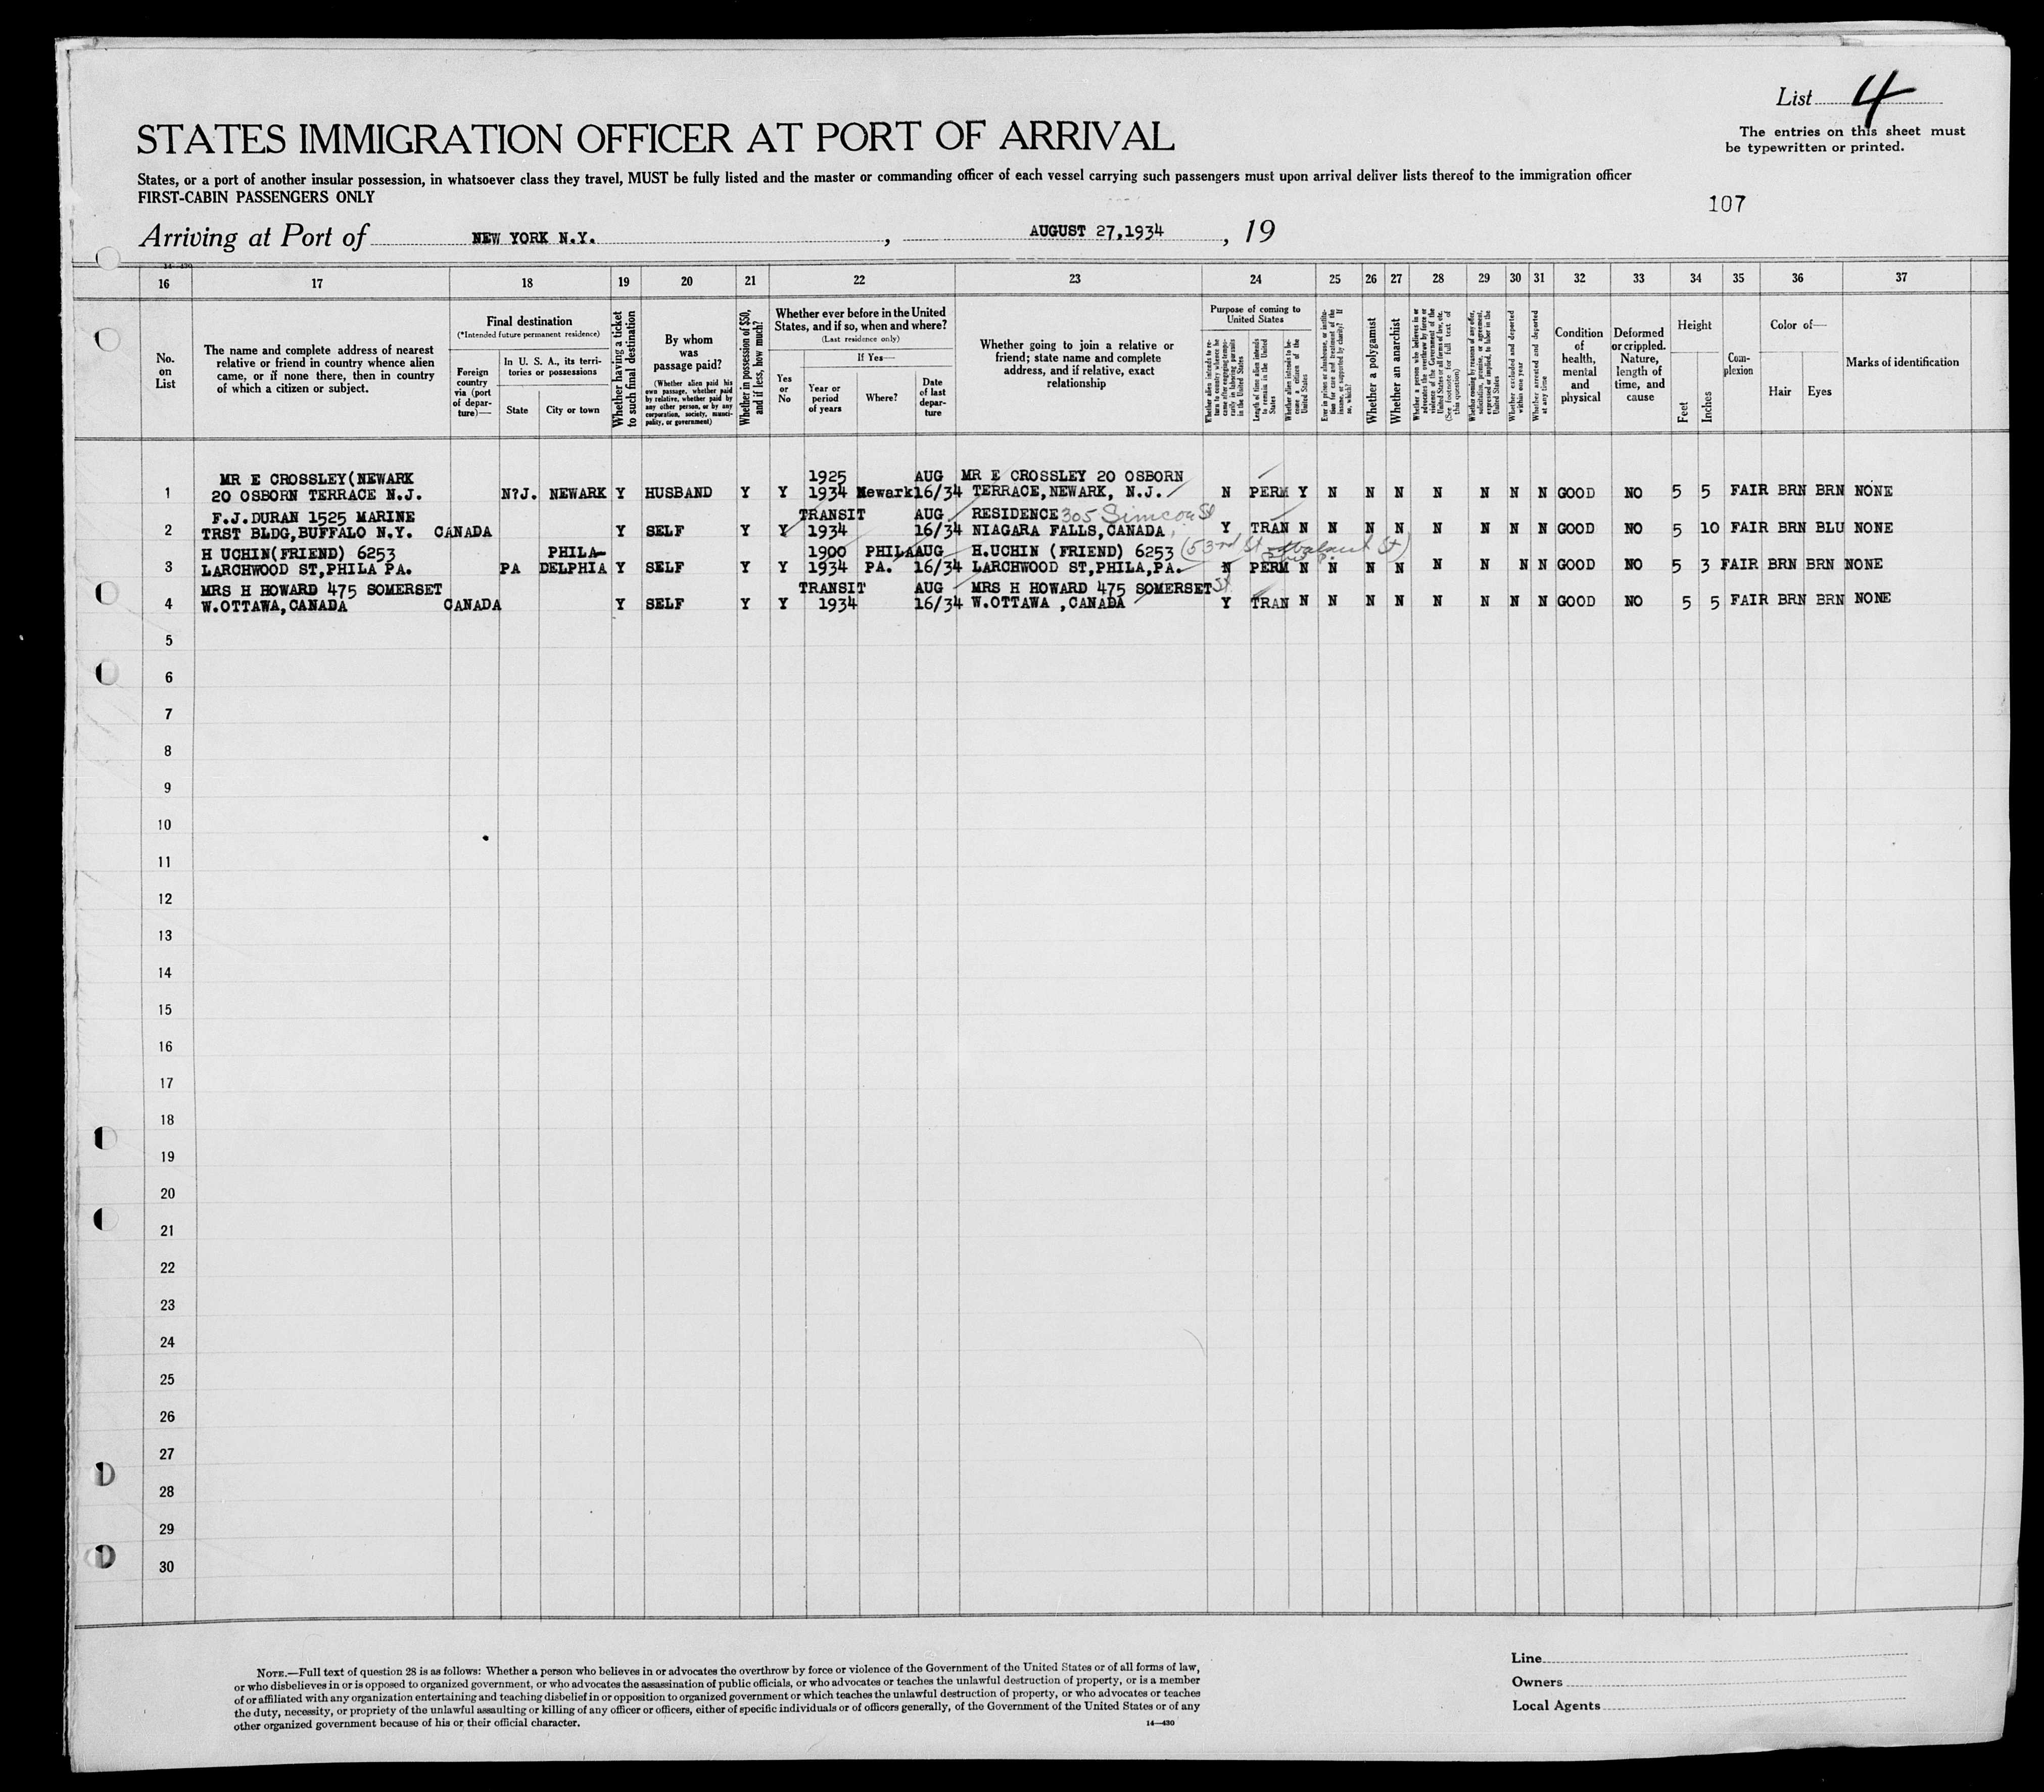 List 4
STATES IMMIGRATION OFFICER AT PORT OF ARRIVAL
The entries on this sheet must
be typewritten or printed.
States, or a port of another insular possession, in whatsoever class they travel, MUST be fully listed and the master or commanding officer of each vessel carrying such passengers must upon arrival deliver lists thereof to the immigration officer
FIRST-CABIN PASSENGERS ONLY
107
Arriving at Port of NEW YORK N.Y. , AUGUST 27,1934 , 19
14—430
16 17 18 19 20 21 22 23 24 25 26 27 28 29 30 31 32 33 34 35 36 37
No.
on
List
The name and complete address of nearest
relative or friend in country whence alien
came, or if none there, then in country
of which a citizen or subject.
Final destination
(*Intended future permanent residence)
Foreign
country
via (port
of depar-
ture)—
In U. S. A., its terri-
tories or possessions
State
City or town
Whether having a ticket
to such final destination
By whom
was
passage paid?
(Whether alien paid his
own passage, whether paid
by relative, whether paid by
any other person, or by any
corporation, society, munici-
pality, or government)
Whether in possession of $50,
and if less, how much?
Whether ever before in the United
States, and if so, when and where?
(Last residence only)
Yes
or
No
If Yes—
Year or
period
of years
Where?
Date
of last
depar-
ture
Whether going to join a relative or
friend; state name and complete
address, and if relative, exact
relationship
Purpose of coming to
United States
Whether alien intends to re-
turn to country whence he
came after engaging tempo-
rarily in laboring pursuits
in the United States
Length of time alien intends
to remain in the United
States
Whether alien intends to be-
come a citizen of the
United States
Ever in prison or almshouse, or institu-
tion for care and treatment of the
insane, or supported by charity? If
so, which?
Whether a polygamist
Whether an anarchist
Whether a person who believes in or
advocates the overthrow by force or
violence of the Government of the
United States or all forms of law, etc.
(See footnote for full text of
this question)
Whether coming by reason of any offer,
solicitation, promise, or agreement,
expressed or implied, to labor in the
United States
Whether excluded and deported
within one year
Whether arrested and deported
at any time
Condition
of
health,
mental
and
physical
Deformed
or crippled.
Nature,
length of
time, and
cause
Height
Feet
Inches
Com-
plexion
Color of—
Hair
Eyes
Marks of identification
MR E CROSSLEY(NEWARK 1925 AUG MR E CROSSLEY 20 OSBORN
1 20 OSBORN TERRACE N.J. N?J. NEWARK Y HUSBAND Y Y 1934 Newark 16/34 TERRACE,NEWARK, N.J. N PERM Y N N N N N N N GOOD NO 5 5 FAIR BRN BRN NONE
F.J.DURAN 1525 MARINE TRANSIT AUG RESIDENCE 305 Simcoe St
2 TRST BLDG,BUFFALO N.Y. CANADA Y SELF Y Y 1934 16/34 NIAGARA FALLS,CANADA Y TRAN N N N N N N N N GOOD NO 5 10 FAIR BRN BLU NONE
H UCHIN(FRIEND) 6253 PHILA- 1900 PHILA AUG H.UCHIN (FRIEND) 6253 (53rd St Walnut St)
3 LARCHWOOD ST,PHILA PA. PA DELPHIA Y SELF Y Y 1934 PA. 16/34 LARCHWOOD ST,PHILA,PA. N PERM N N N N N N N N GOOD NO 5 3 FAIR BRN BRN NONE
MRS H HOWARD 475 SOMERSET TRANSIT AUG MRS H HOWARD 475 SOMERSET St
4 W.OTTAWA,CANADA CANADA Y SELF Y Y 1934 16/34 W.OTTAWA ,CANADA Y TRAN N N N N N N N N GOOD NO 5 5 FAIR BRN BRN NONE
5
6
7
8
9
10
11
12
13
14
15
16
17
18
19
20
21
22
23
24
25
26
27
28
29
30
NOTE.—Full text of question 28 is as follows: Whether a person who believes in or advocates the overthrow by force or violence of the Government of the United States or of all forms of law,
or who disbelieves in or is opposed to organized government, or who advocates the assassination of public officials, or who advocates or teaches the unlawful destruction of property, or is a member
of or affiliated with any organization entertaining and teaching disbelief in or opposition to organized government or which teaches the unlawful destruction of property, or who advocates or teaches
the duty, necessity, or propriety of the unlawful assaulting or killing of any officer or officers, either of specific individuals or of officers generally, of the Government of the United States or of any
other organized government because of his or their official character.
14—430
Line
Owners
Local Agents